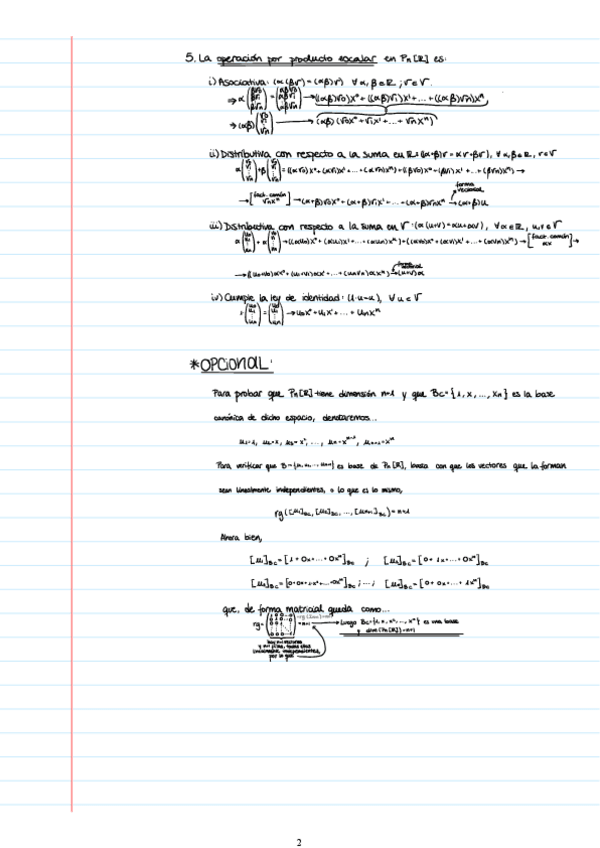 5. La operación por producto escalar en Pn[R] es:
i) Asociativa: (α(βv) = (αβ)v) ∀ α, β ∈ R ; v ∈ V.
⇒ α (βv0 βv1 ⋮ βvn) = (αβv0 αβv1 ⋮ αβvn) → ((αβ)v0)x⁰ + ((αβ)v1)x¹ + ... + ((αβ)vn)xⁿ,
→ (αβ) (v0 v1 ⋮ vn) → (αβ) (v0x⁰ + v1x¹ + ... + vnxⁿ)
ii) Distributiva con respecto a la suma en R: (α+β)v = αv + βv), ∀ α, β ∈ R, v ∈ V
→ [fact. común vnxⁿ] → (α+β)v0x⁰ + (α+β)v1x¹ + ... + (α+β)vnxⁿ → forma vectorial (α+β)v
iii) Distributiva con respecto a la suma en V: (α(u+v) = αu + αv), ∀ α ∈ R, u, v ∈ V
α (u0 u1 ⋮ un) + α (v0 v1 ⋮ vn) → ((αu0)x⁰ + (αu1)x¹ + ... + (αun)xⁿ) + ((αv0)x⁰ + (αv1)x¹ + ... + (αvn)xⁿ) → [fact. común αx] →
→ (u0+v0)αx⁰ + (u1+v1)αx¹ + ... + (un+vn)αxⁿ → (u+v)α
iv) Cumple la ley de identidad: (1·u = u), ∀ u ∈ V
1· (u0 u1 ⋮ un) = (u0 u1 ⋮ un) → u0x⁰ + u1x¹ + ... + unxⁿ
*OPCIONAL:
Para probar que Pn[R] tiene dimensión n+1 y que Bc = {1, x, ..., xn} es la base
canónica de dicho espacio, denotaremos...
u1 = 1, u2 = x, u3 = x², ..., un = xⁿ⁻¹, un+1 = xⁿ
Para verificar que B = {u1, u2, ..., un+1} es base de Pn[R], basta con que los vectores que la forman
sean linealmente independientes, o lo que es lo mismo,
rg([u1]Bc, [u2]Bc, ..., [un+1]Bc) = n+1
Ahora bien,
[u1]Bc = [1 + 0x + ... + 0xⁿ]Bc ; [u2]Bc = [0 + 1x + ... + 0xⁿ]Bc
[u3]Bc = [0 + 0x + 1x² + ... + 0xⁿ]Bc ; ... ; [un]Bc = [0 + 0x + ... + 1xⁿ]Bc
que, de forma matricial queda como...
→ Luego Bc = {1, x, x², ..., xⁿ} es una base
y dim(Pn[R]) = n+1
linealmente independientes,
por lo que
2